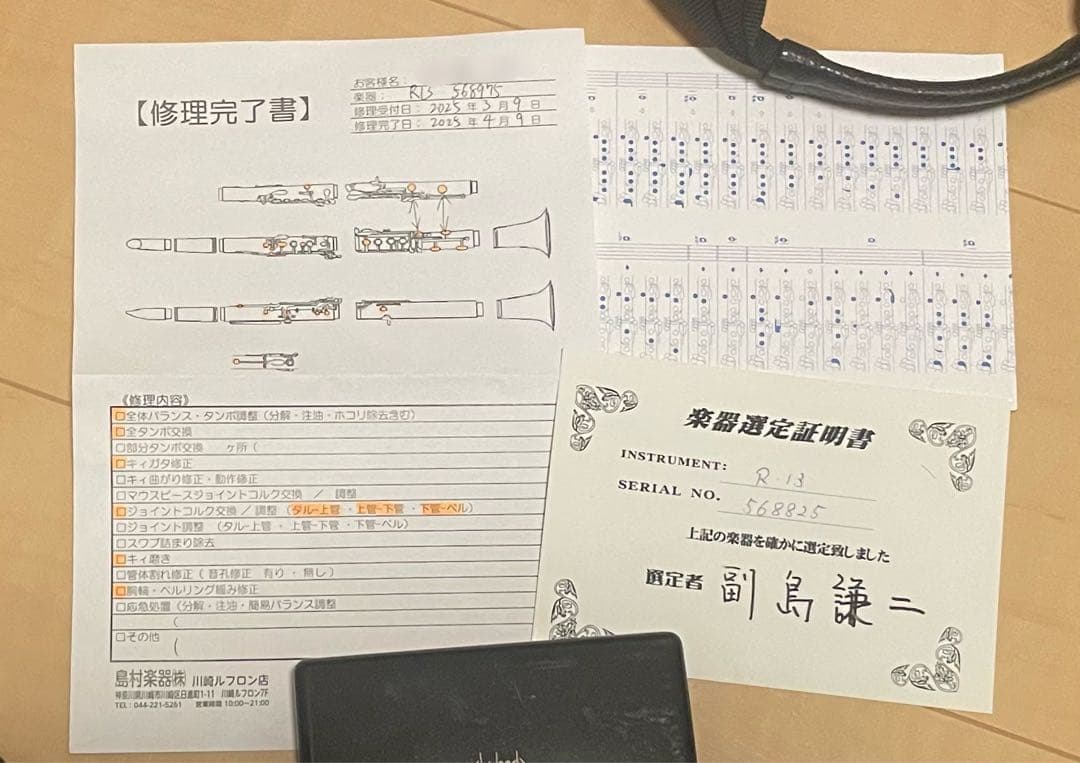 【修理完了書】
お客様名：
楽器： R13 568975
修理受付日： 2025 年 3 月 9 日
修理完了日： 2025 年 4 月 9 日
《修理内容》
□全体バランス・タンポ調整（分解・注油・ホコリ除去含む）
□全タンポ交換
□部分タンポ交換 ヶ所（
□キィガタ修正
□キィ曲がり修正・動作修正
□マウスピースジョイントコルク交換 ／ 調整
□ジョイントコルク交換 ／ 調整 （タル-上管 ・ 上管-下管 ・ 下管-ベル）
□ジョイント調整 （タル-上管 ・ 上管-下管 ・ 下管-ベル）
□スワブ詰まり除去
□キィ磨き
□管体割れ修正（ 音孔修正 有り ・ 無し ）
□胴輪・ベルリング緩み修正
□応急処置（分解・注油・簡易バランス調整
（
□その他
（
島村楽器㈱ 川崎ルフロン店
神奈川県川崎市川崎区日進町1-11 川崎ルフロン7F
TEL：044-221-5261 営業時間 10:00～21:00
楽器選定証明書
INSTRUMENT: R-13
SERIAL NO. 568825
上記の楽器を確かに選定致しました
選定者 副島謙二